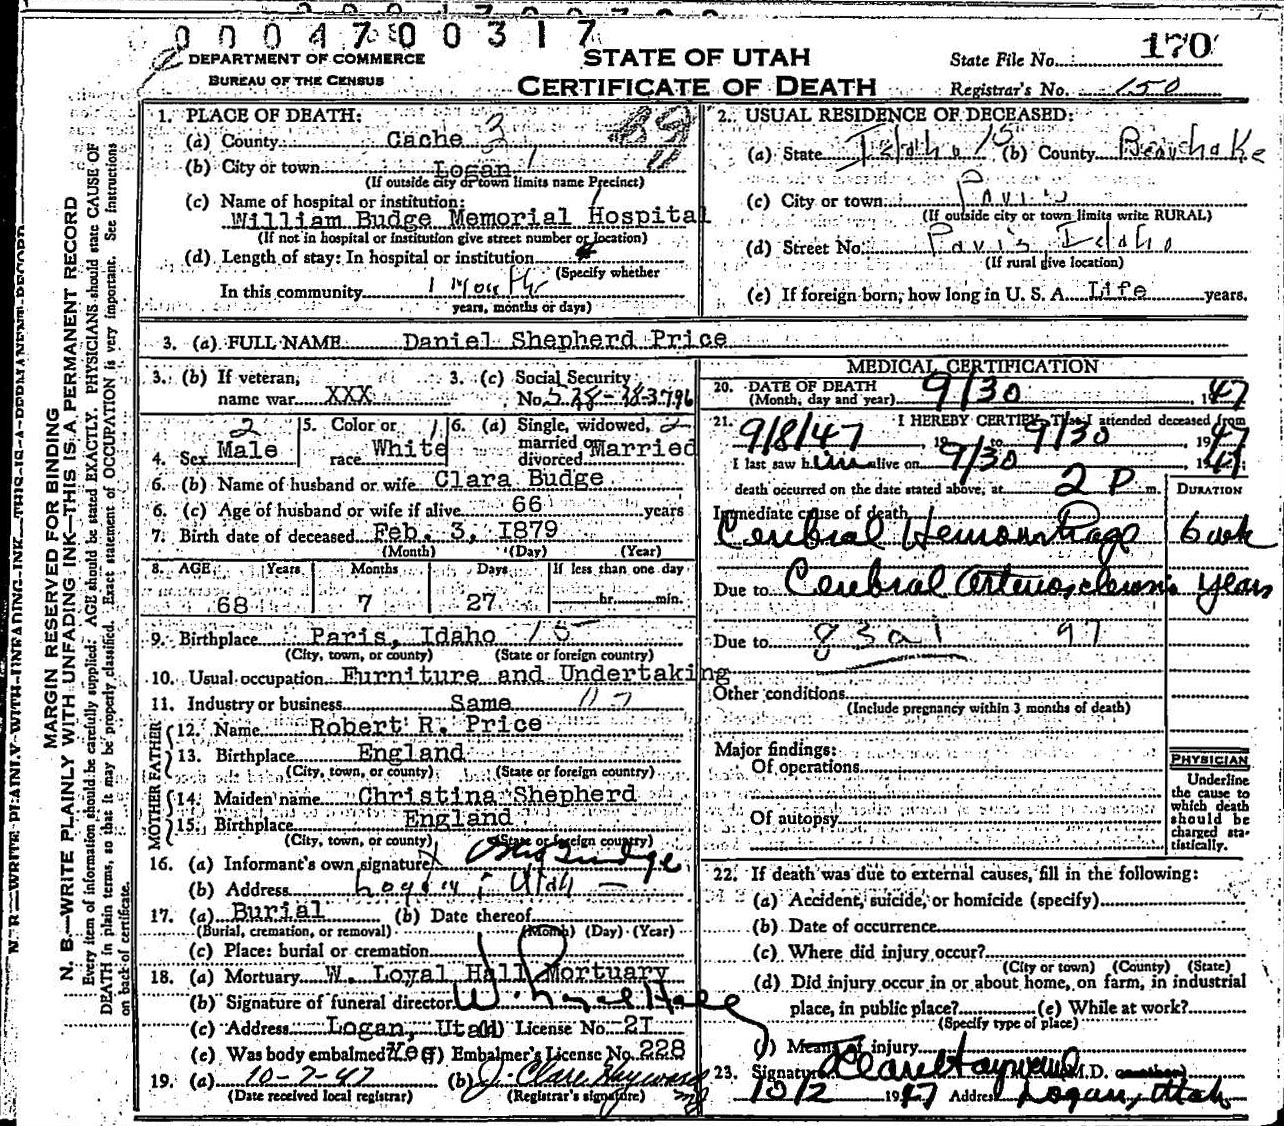 0004700317
DEPARTMENT OF COMMERCE
BUREAU OF THE CENSUS
STATE OF UTAH
CERTIFICATE OF DEATH
State File No. 170
Registrar's No. 150
MARGIN RESERVED FOR BINDING
N. B.—WRITE PLAINLY WITH UNFADING INK—THIS IS A PERMANENT RECORD
Every item of information should be carefully supplied. AGE should be stated EXACTLY. PHYSICIANS should state CAUSE OF
DEATH in plain terms, so that it may be properly classified. Exact statement of OCCUPATION is very important. See instructions
on back of certificate.
1. PLACE OF DEATH:
(a) County Cache 3
(b) City or town Logan 1
(If outside city or town limits name Precinct)
(c) Name of hospital or institution:
William Budge Memorial Hospital
(If not in hospital or institution give street number or location)
(d) Length of stay: In hospital or institution
(Specify whether
In this community 1 Month
years, months or days)
2. USUAL RESIDENCE OF DECEASED:
(a) State Idaho 15 (b) County Bear Lake
(c) City or town Paris
(If outside city or town limits write RURAL)
(d) Street No. Paris Idaho
(If rural give location)
(e) If foreign born, how long in U. S. A. Life years.
3. (a) FULL NAME Daniel Shepherd Price
3. (b) If veteran,
name war XXX
3. (c) Social Security
No.
4. Sex Male 2
5. Color or
race White 1
6. (a) Single, widowed,
married or
divorced Married 2
6. (b) Name of husband or wife Clara Budge
6. (c) Age of husband or wife if alive 66 years
7. Birth date of deceased Feb. 3, 1879
(Month) (Day) (Year)
8. AGE Years Months Days If less than one day
68 7 27 hr. min.
9. Birthplace Paris, Idaho 15
(City, town, or county) (State or foreign country)
10. Usual occupation Furniture and Undertaking
11. Industry or business Same
FATHER
12. Name Robert R. Price
13. Birthplace England
(City, town, or county) (State or foreign country)
MOTHER
14. Maiden name Christina Shepherd
15. Birthplace England
(City, town, or county) (State or foreign country)
16. (a) Informant's own signature Budge
(b) Address Logan, Utah
17. (a) Burial (b) Date thereof
(Burial, cremation, or removal) (Month) (Day) (Year)
(c) Place: burial or cremation
18. (a) Mortuary W. Loyal Hall Mortuary
(b) Signature of funeral director W. Loyal Hall
(c) Address Logan, Utah (d) License No. 21
(e) Was body embalmed Yes (f) Embalmer's License No. 228
19. (a) 10-7-47 (b) J. Clare Hayward
(Date received local registrar) (Registrar's signature)
MEDICAL CERTIFICATION
20. DATE OF DEATH
(Month, day and year) 9/30, 1947
21. I HEREBY CERTIFY, That I attended deceased from
9/8/47, 19 to 9/30 1947
I last saw him alive on 9/30, 1947
death occurred on the date stated above, at 2 P m. DURATION
Immediate cause of death
Cerebral Hemorrhage 6 wk
Due to Cerebral Arteriosclerosis years
Due to 83a1 97
Other conditions
(Include pregnancy within 3 months of death)
Major findings:
Of operations
Of autopsy
PHYSICIAN
Underline
the cause to
which death
should be
charged sta-
tistically.
22. If death was due to external causes, fill in the following:
(a) Accident, suicide, or homicide (specify)
(b) Date of occurrence
(c) Where did injury occur?
(City or town) (County) (State)
(d) Did injury occur in or about home, on farm, in industrial
place, in public place? (e) While at work?
(Specify type of place)
(f) Means of injury
23. Signature J Clare Hayward M.D.
10/2 1947 Address Logan, Utah